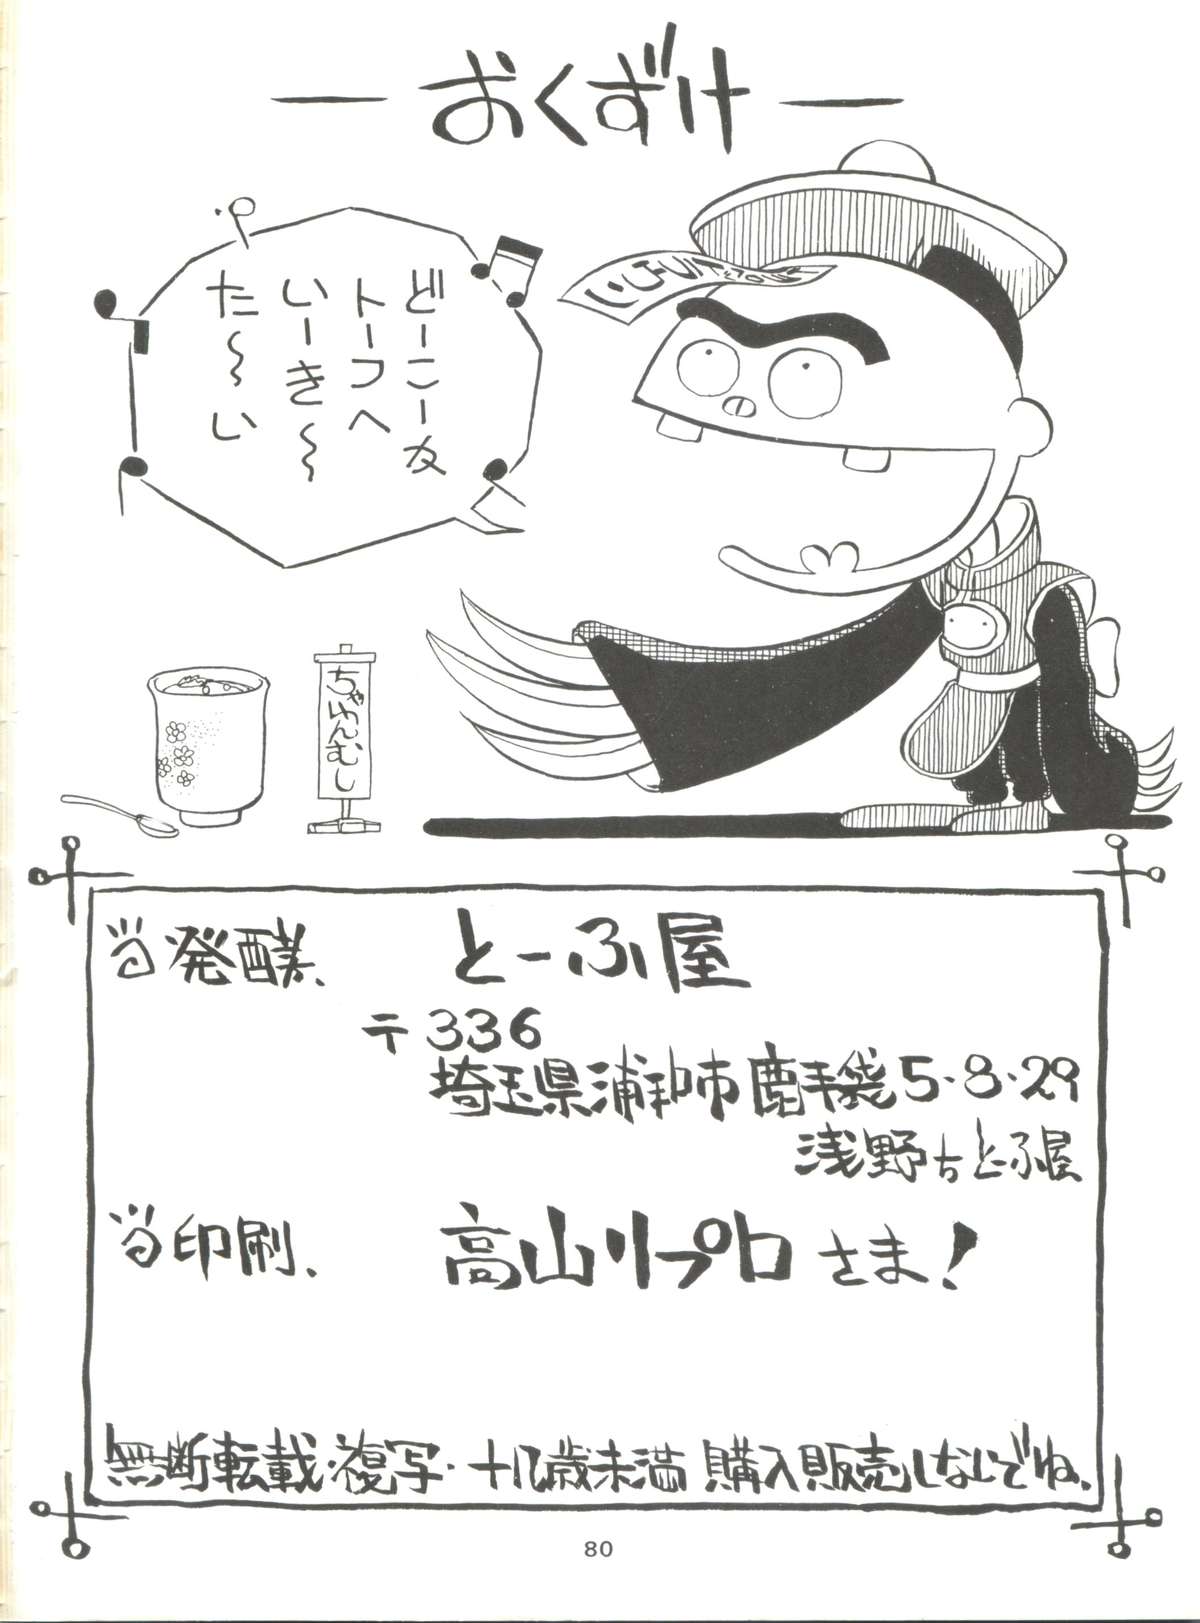 ―おくずけ―
どーこー友
トーフへ
いーき〜〜
た〜〜い
ちゃわんむし
当発酵、 とーふ屋
〒336
埼玉県浦和市鹿手袋5・8・29
浅野方とーふ屋
当印刷、 高山リプロさま！
無断転載・複写・十八歳未満購入販売しないでね、
80